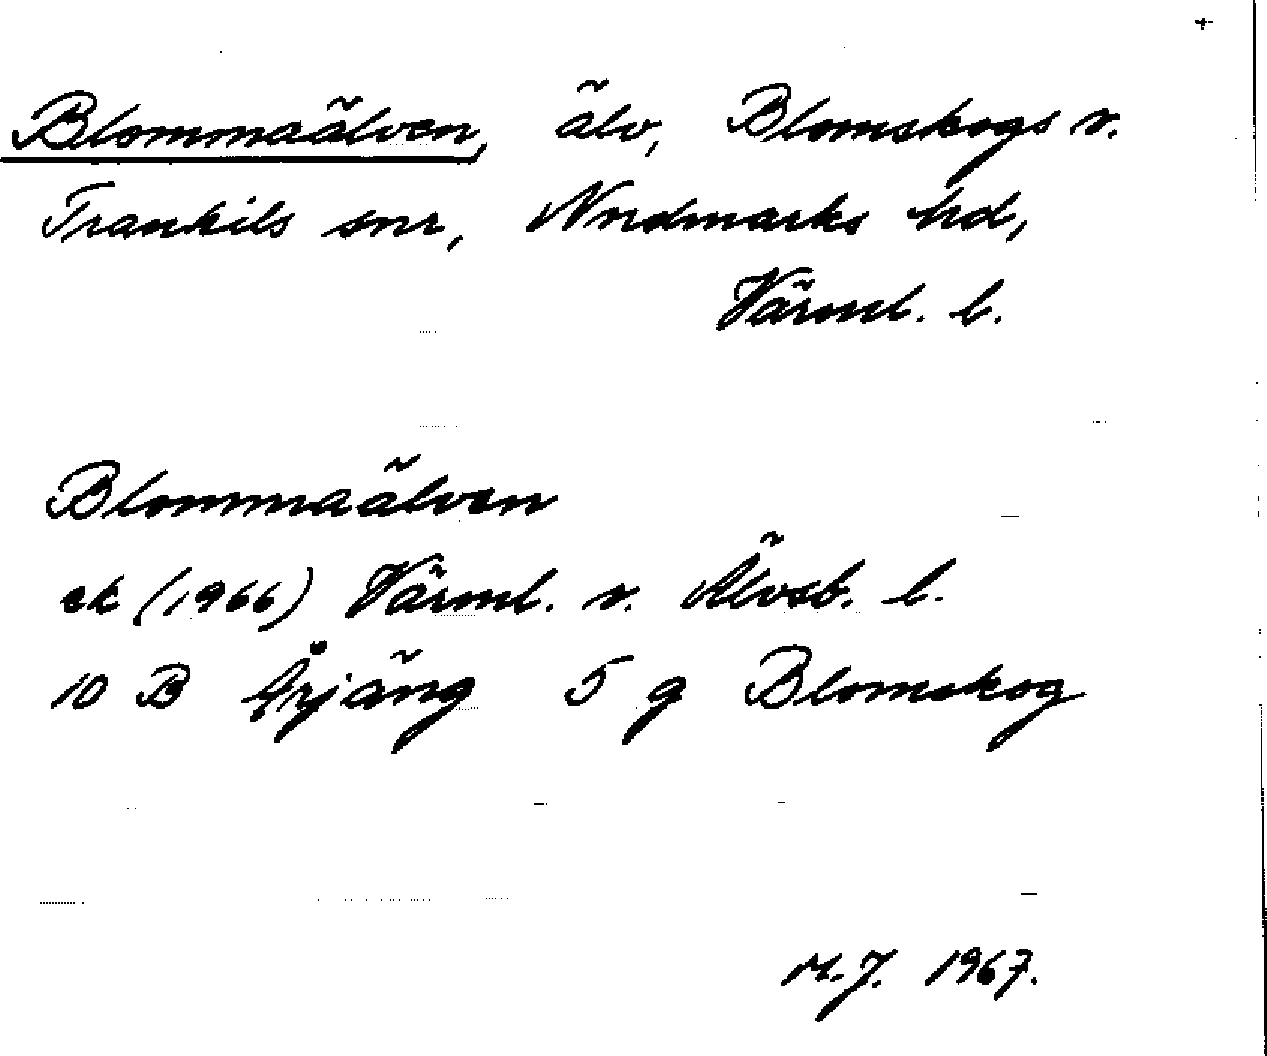 Blommaälven, älv, Blomskogs o.
Trankils snr, Nordmarks hd,
Värml. l.
Blommaälven
ek (1966) Värml. o. Älvsb. l.
10 B Årjäng 5 g Blomskog
M.J. 1967.